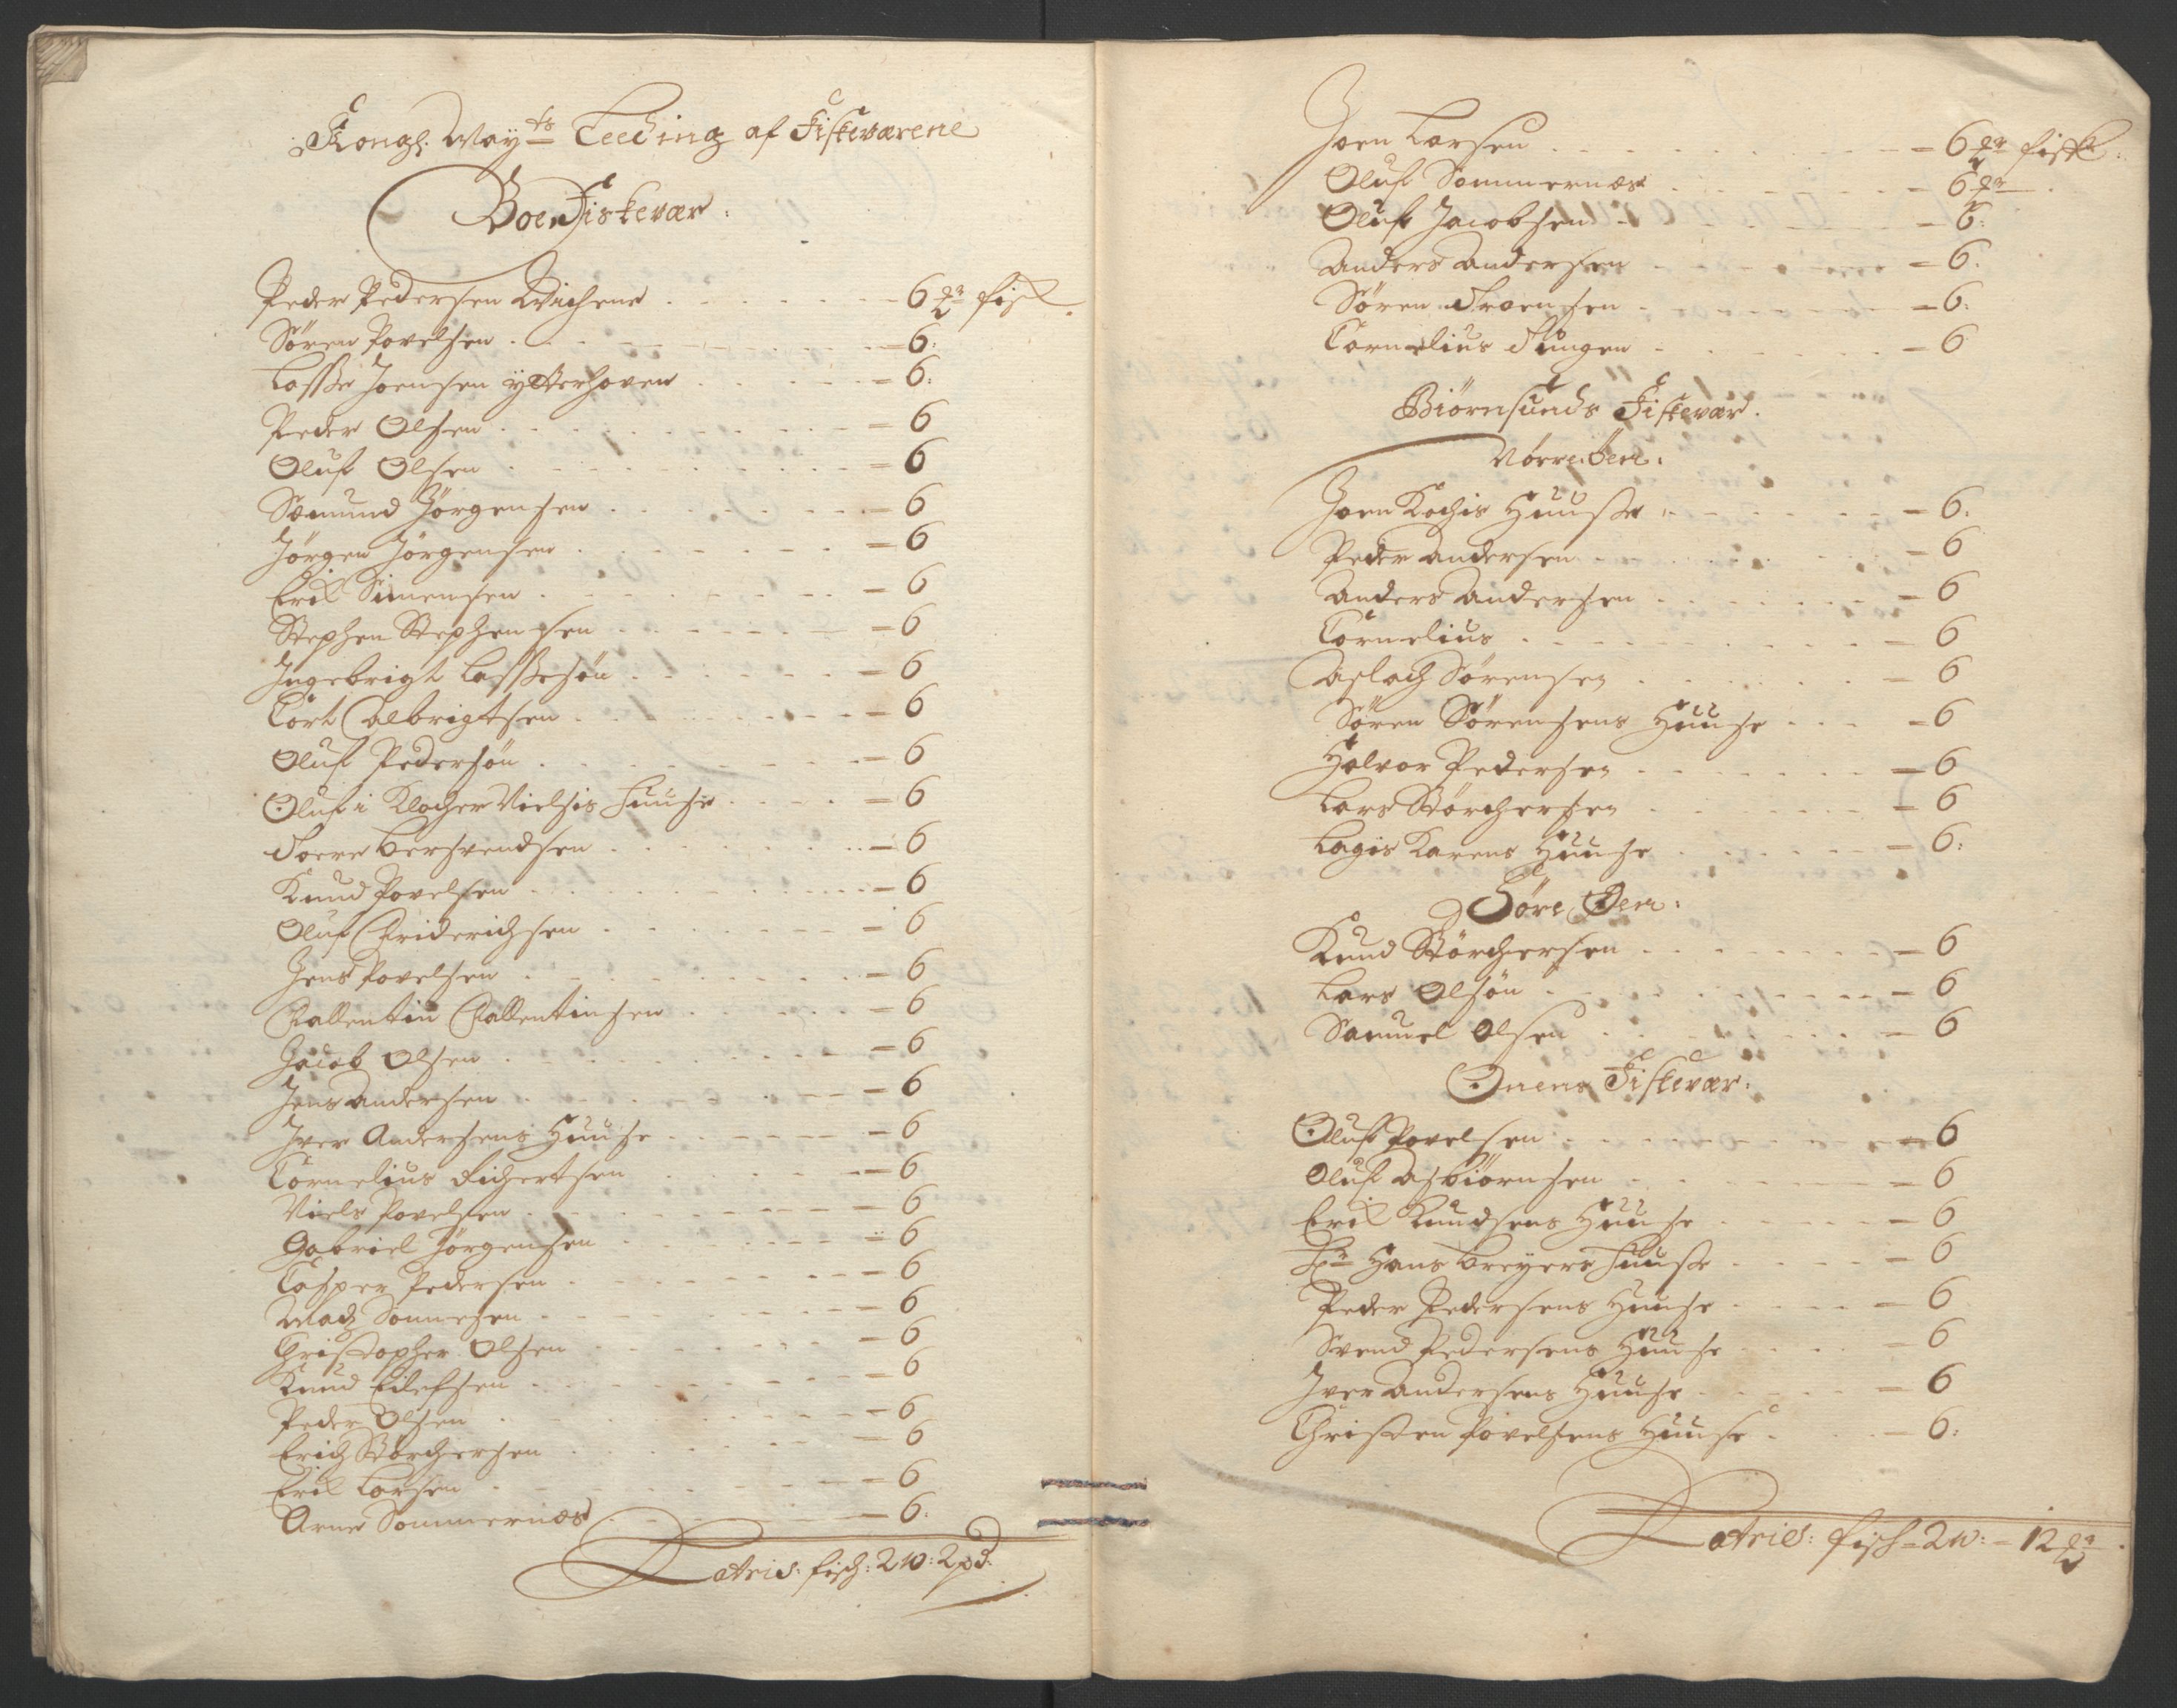 Kongl. May:ts Leeding af Fiskeværene
Boen Fiskevær:
Peder Pedersen Wichene - 6 pd fisk
Sören Povelsen - 6:
Lasse Joensen ÿtterhoven - 6:
Peder Olsen - 6
Oluf Olsen - 6
Somund Jörgensen - 6
Jörgen Jörgensen - 6
Eric Simensen - 6
Stephen Stephensen - 6
Ingebrigt Lassesön - 6
Cort Albrigtsen - 6
Oluf Pedersön - 6
Oluf i Klocher Nielsis Huuse - 6
Toere Bersvendsen - 6
Knud Povelsen - 6
Oluf Friderichsen - 6
Jens Povelsen - 6
Vallentin Vallentinsen - 6
Jacob Olsen - 6
Jens Andersen - 6
Iver Andersens Huuse - 6
Cornelius Richertsen - 6
Niels Povelsen - 6
Gabriel Jörgensen - 6
Casper Pedersen - 6
Madz Sonnesen - 6
Christopher Olsen - 6
Knud Eilefsen - 6
Peder Olsen - 6
Erich Störchersen - 6
Eric Larsen - 6
Arne Sommernæs - 6:
Latris: fisch: 2 W: 2 pd:
Joen Larsen - 6 pd fisk:
Oluf Sommernæs - 6 pd
Oluf Jacobsen - 6:
Anders Andersen - 6:
Sören Troensen - 6:
Cornelius Tungen - 6
Biörnsunds Fiskevær.
Nörre Öen:
Joen Kochis Huuse - 6:
Peder Andersen - 6
Anders Andersen - 6
Cornelius - 6
Aslach Sörensen - 6
Sören Sörensens Huuse - 6
Halvor Pedersen - 6
Lars Störchersen - 6
Lagis Karens Huuse - 6:
Söre Öen:
Knud Störchersen - 6
Lars Olsön - 6
Samuel Olsen - 6
Onens Fiskevær:
Oluf Povelsen - 6
Oluf Asbiörnsen - 6
Eric Knudsens Huuse - 6
Hr Hans Breyers Huuse - 6
Peder Pedersens Huuse - 6
Svend Pedersens Huuse - 6
Iver Andersens Huuse - 6
Christen Povelsens Huuse - 6:
Latris: fisch - 2 W: - 12 pd